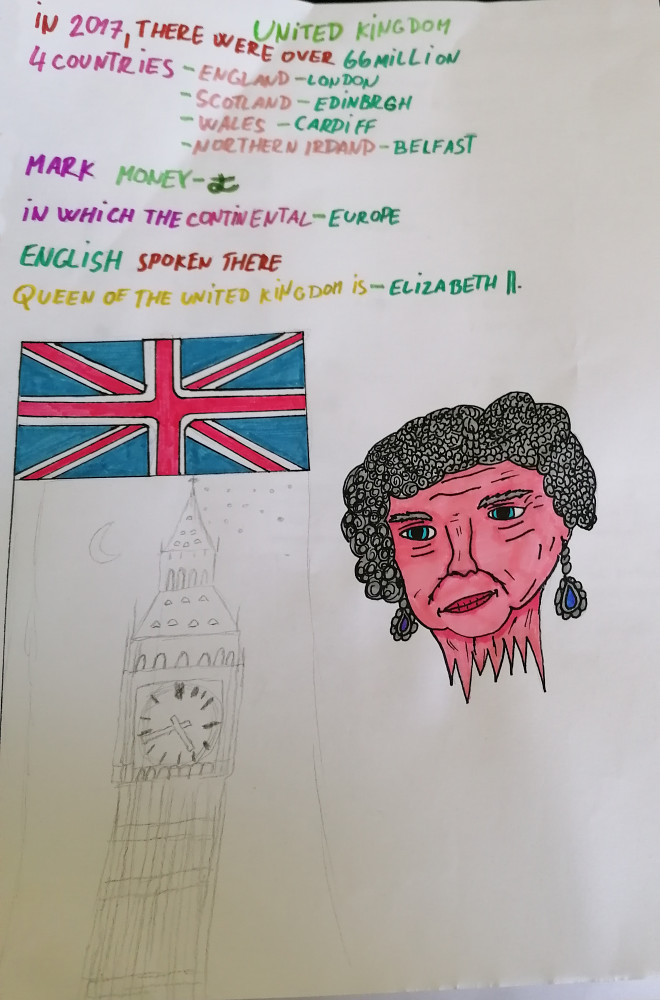 UNITED KINGDOM
IN 2017, THERE WERE OVER 66 MILLION
4 COUNTRIES - ENGLAND - LONDON
- SCOTLAND - EDINBRGH
- WALES - CARDIFF
- NORTHERN IRDAND - BELFAST
MARK MONEY -
IN WHICH THE CONTINENTAL - EUROPE
ENGLISH SPOKEN THERE
QUEEN OF THE UNITED KINGDOM IS - ELIZABETH II.